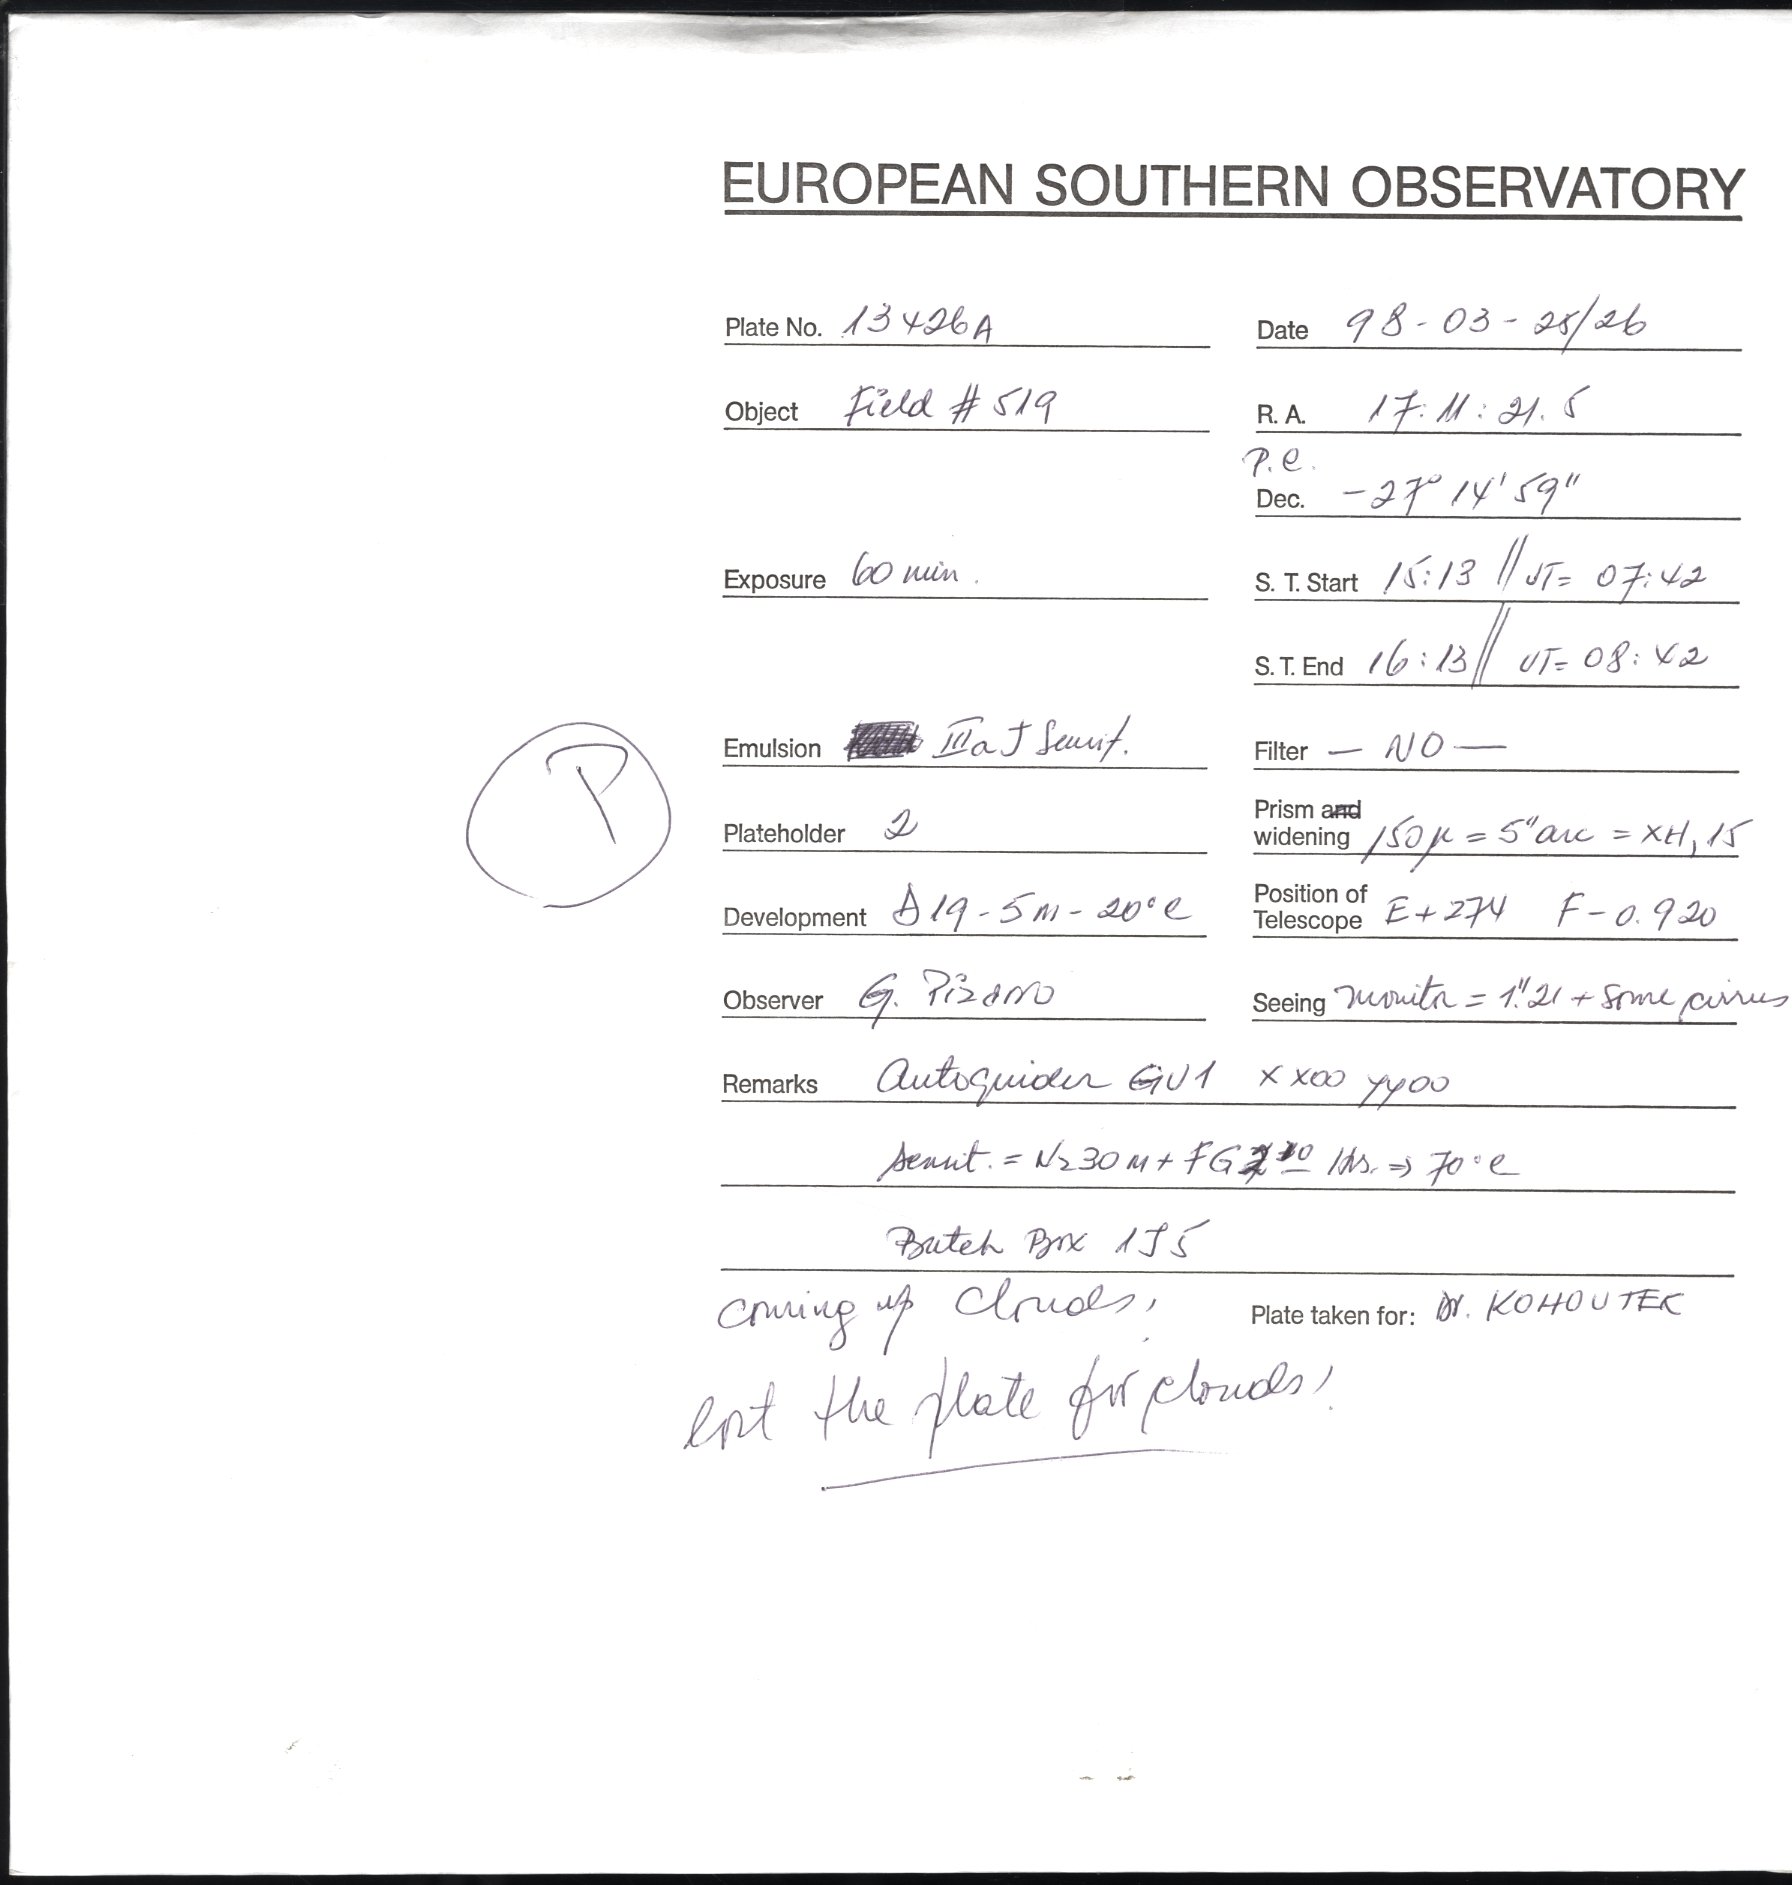 EUROPEAN SOUTHERN OBSERVATORY
Plate No. 13426A Date 98-03-25/26
Object Field # 519 R. A. 17:11:21.5
P.C.
Dec. -27° 14' 59"
Exposure 60 min. S. T. Start 15:13 // UT= 07:42
S. T. End 16:13 // UT= 08:42
Emulsion IIIa J Sensit. Filter — NO —
P
Plateholder 2 Prism and widening 150μ = 5" arc = XH, 15
Development D19-5m-20°C Position of Telescope E+274 F-0.920
Observer G. Pizarro Seeing monitor = 1."21 + some cirrus
Remarks Autoguider GV1 XX00 YY00
Sensit. = N2 30m + FG Hrs. ⇒ 70°C
Batch Box 1J5
coming up clouds! Plate taken for: Dr. KOHOUTEK
lost the plate for clouds!